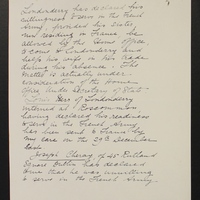 Londonderry has declared his
willingness to serve in the French
Army provided his sister
now residing in France be
allowed by the Home Office
to come to Londonderry and
help his wife in her trade
during his absence. The
matter is actually under
consideration of the Home
Office Under Secretary of State
Herr of Londonderry
interned at Roscommon
having declared his readiness
to serve in the French Army
has been sent to France by
my care on the 29th December
last.
Joseph Cheray of 45 Rutland
Square Dublin has declared
to me that he was unwilling
to serve in the French Army